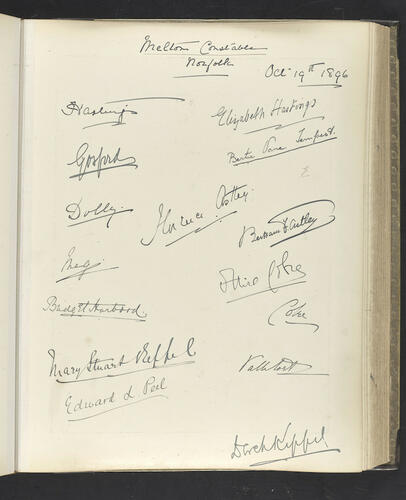 Melton Constable
Norfolk
Oct 19th 1896
Hastings
Elizabeth Hastings
Gosford
Bertie Vane Tempest
Dolly.
Florence Astley.
Bertram F. Astley
Coke
Bridget Harbord
Coke
Mary Stuart Keppel
Valletort
Edward L Peel
Derek Keppel